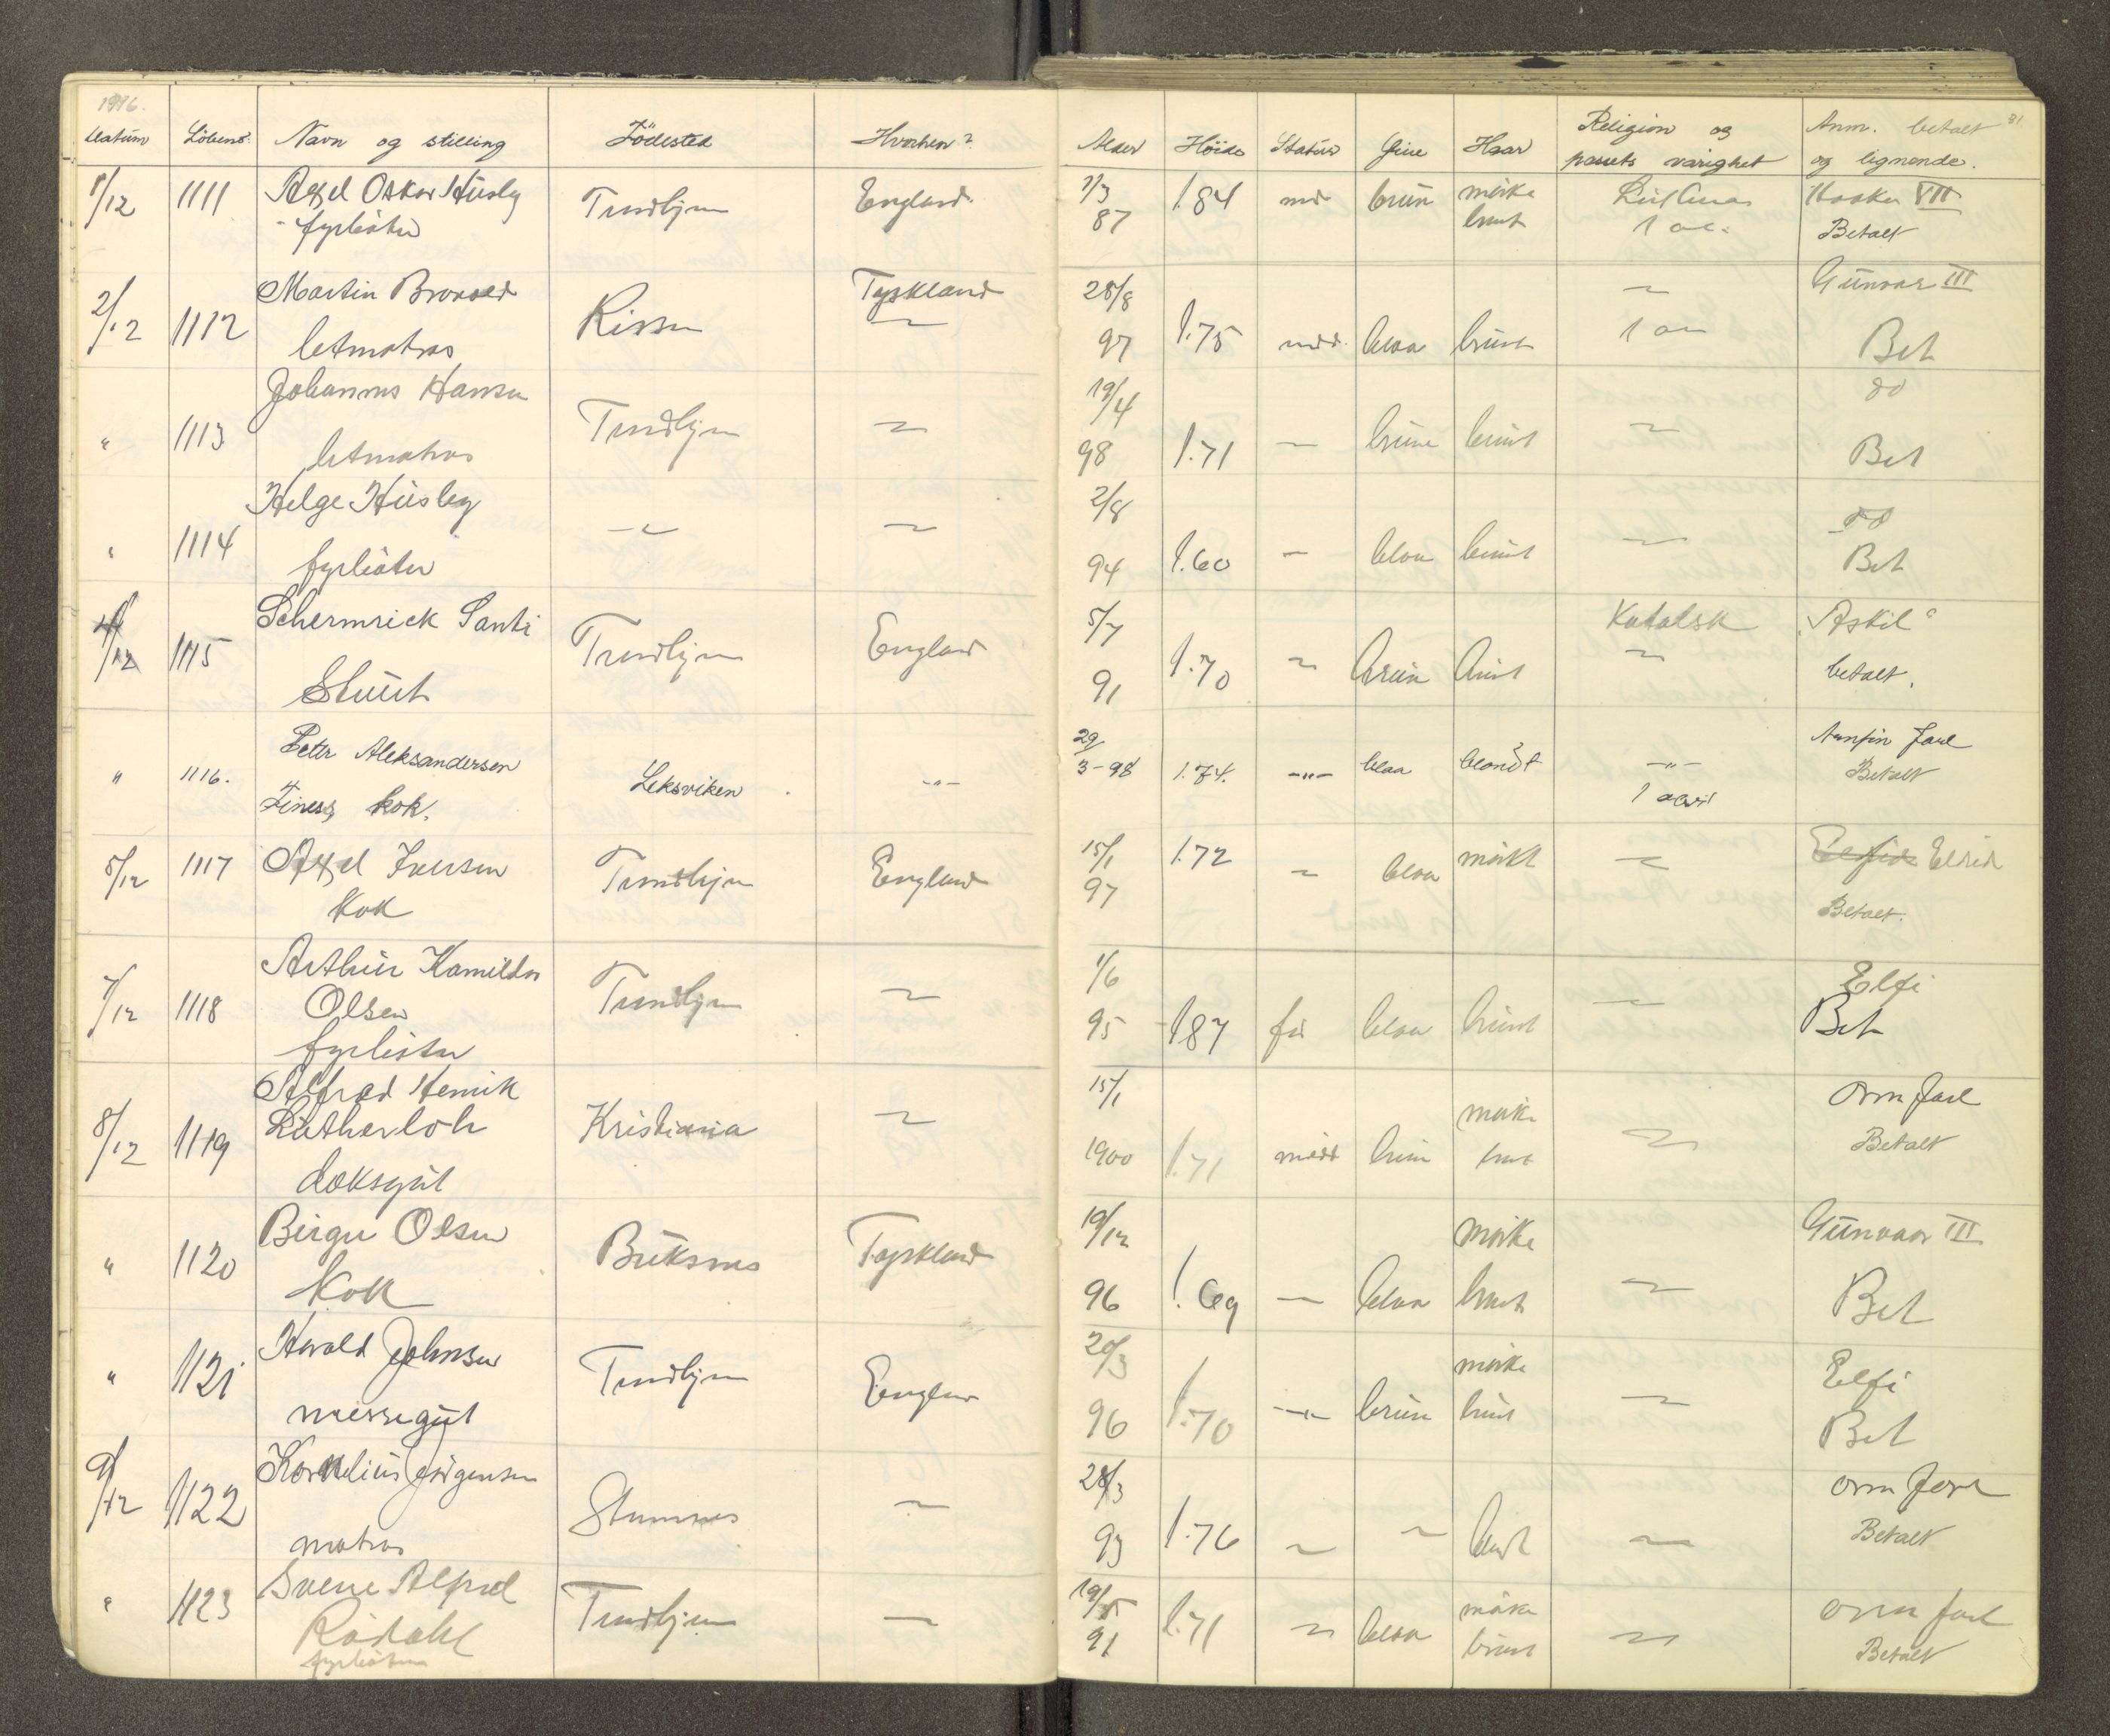 1916.
Datum Löbenr. Navn og stilling Födested Hvorhen? Alder Höide Statur Öine Haar Religion og Anm. betalt 81
passets varighet og lignende.
1/12 1111 Axel Oskar Húsby Trondhjem England 1/3 1.84 md brún mörke Luthersk Haakon VII
fyrböter 87 brunt 1 aar Betalt
2/12 1112 Martin Tyskland 28/8 ~ Gúnvor III
letmatros Rissen ~ 97 1.75 midd. blaa brúnt 1 aar Bet
" 1113 Johannes Hansen Trondhjem ~ 19/4 do
letmatros 98 1.71 ~ brúne brúnt ~ Bet
" 1114 Helge Húsby ~ ~ 2/8 do
fyrböter 94 1.60 ~ blaa brúnt ~ Bet
4/12 1115 Schermrick Santi Trondhjem England 5/7 Katolsk "Askil"
Stúert 91 1.70 ~ brún brúnt ~ betalt.
" 1116. Peter Aleksandersen Leksviken -"- 29/3-98 1.74. -"- blaa blondt -"- Arnfin Jarl
Finess, kok. 1 aar Betalt
5/12 1117 Axel Iversen Trondhjem England 15/1 1.72 ~ blaa mörkt ~ Elrid
kok 97 Betalt.
7/12 1118 Arthúr Kamildor Trondhjem ~ 1/6 Elfi
Olsen 95 1.87 blaa brúnt ~ Bet
fyrböter
8/12 1119 Alfred Henrik 15/1 mörke Orm Jarl
Lútherloh Kristiania ~ 1900 1.71 midd brún brunt ~ Betalt
doksgút
" 1120 Birger Olsen Búksnes Tyskland 19/12 mörke Gúnvor III
kok 96 1.69 ~ blaa brunt ~ Bet
" 1121 Harald Johnsen Trondhjem England 20/3 mörke Elfi
messegút 96 1.70 ~ brún brúnt ~ Bet
9/12 1122 Kornelius Jörgensen Stamnes ~ 28/3 Orm Jarl
matros 93 1.76 ~ ~ ~ Betalt
" 1123 Sverre Alfred Trondhjem ~ 19/5 1.71 ~ blaa mörke ~ Orm Jarl
Rödahl 91 brúnt Betalt
fyrböter